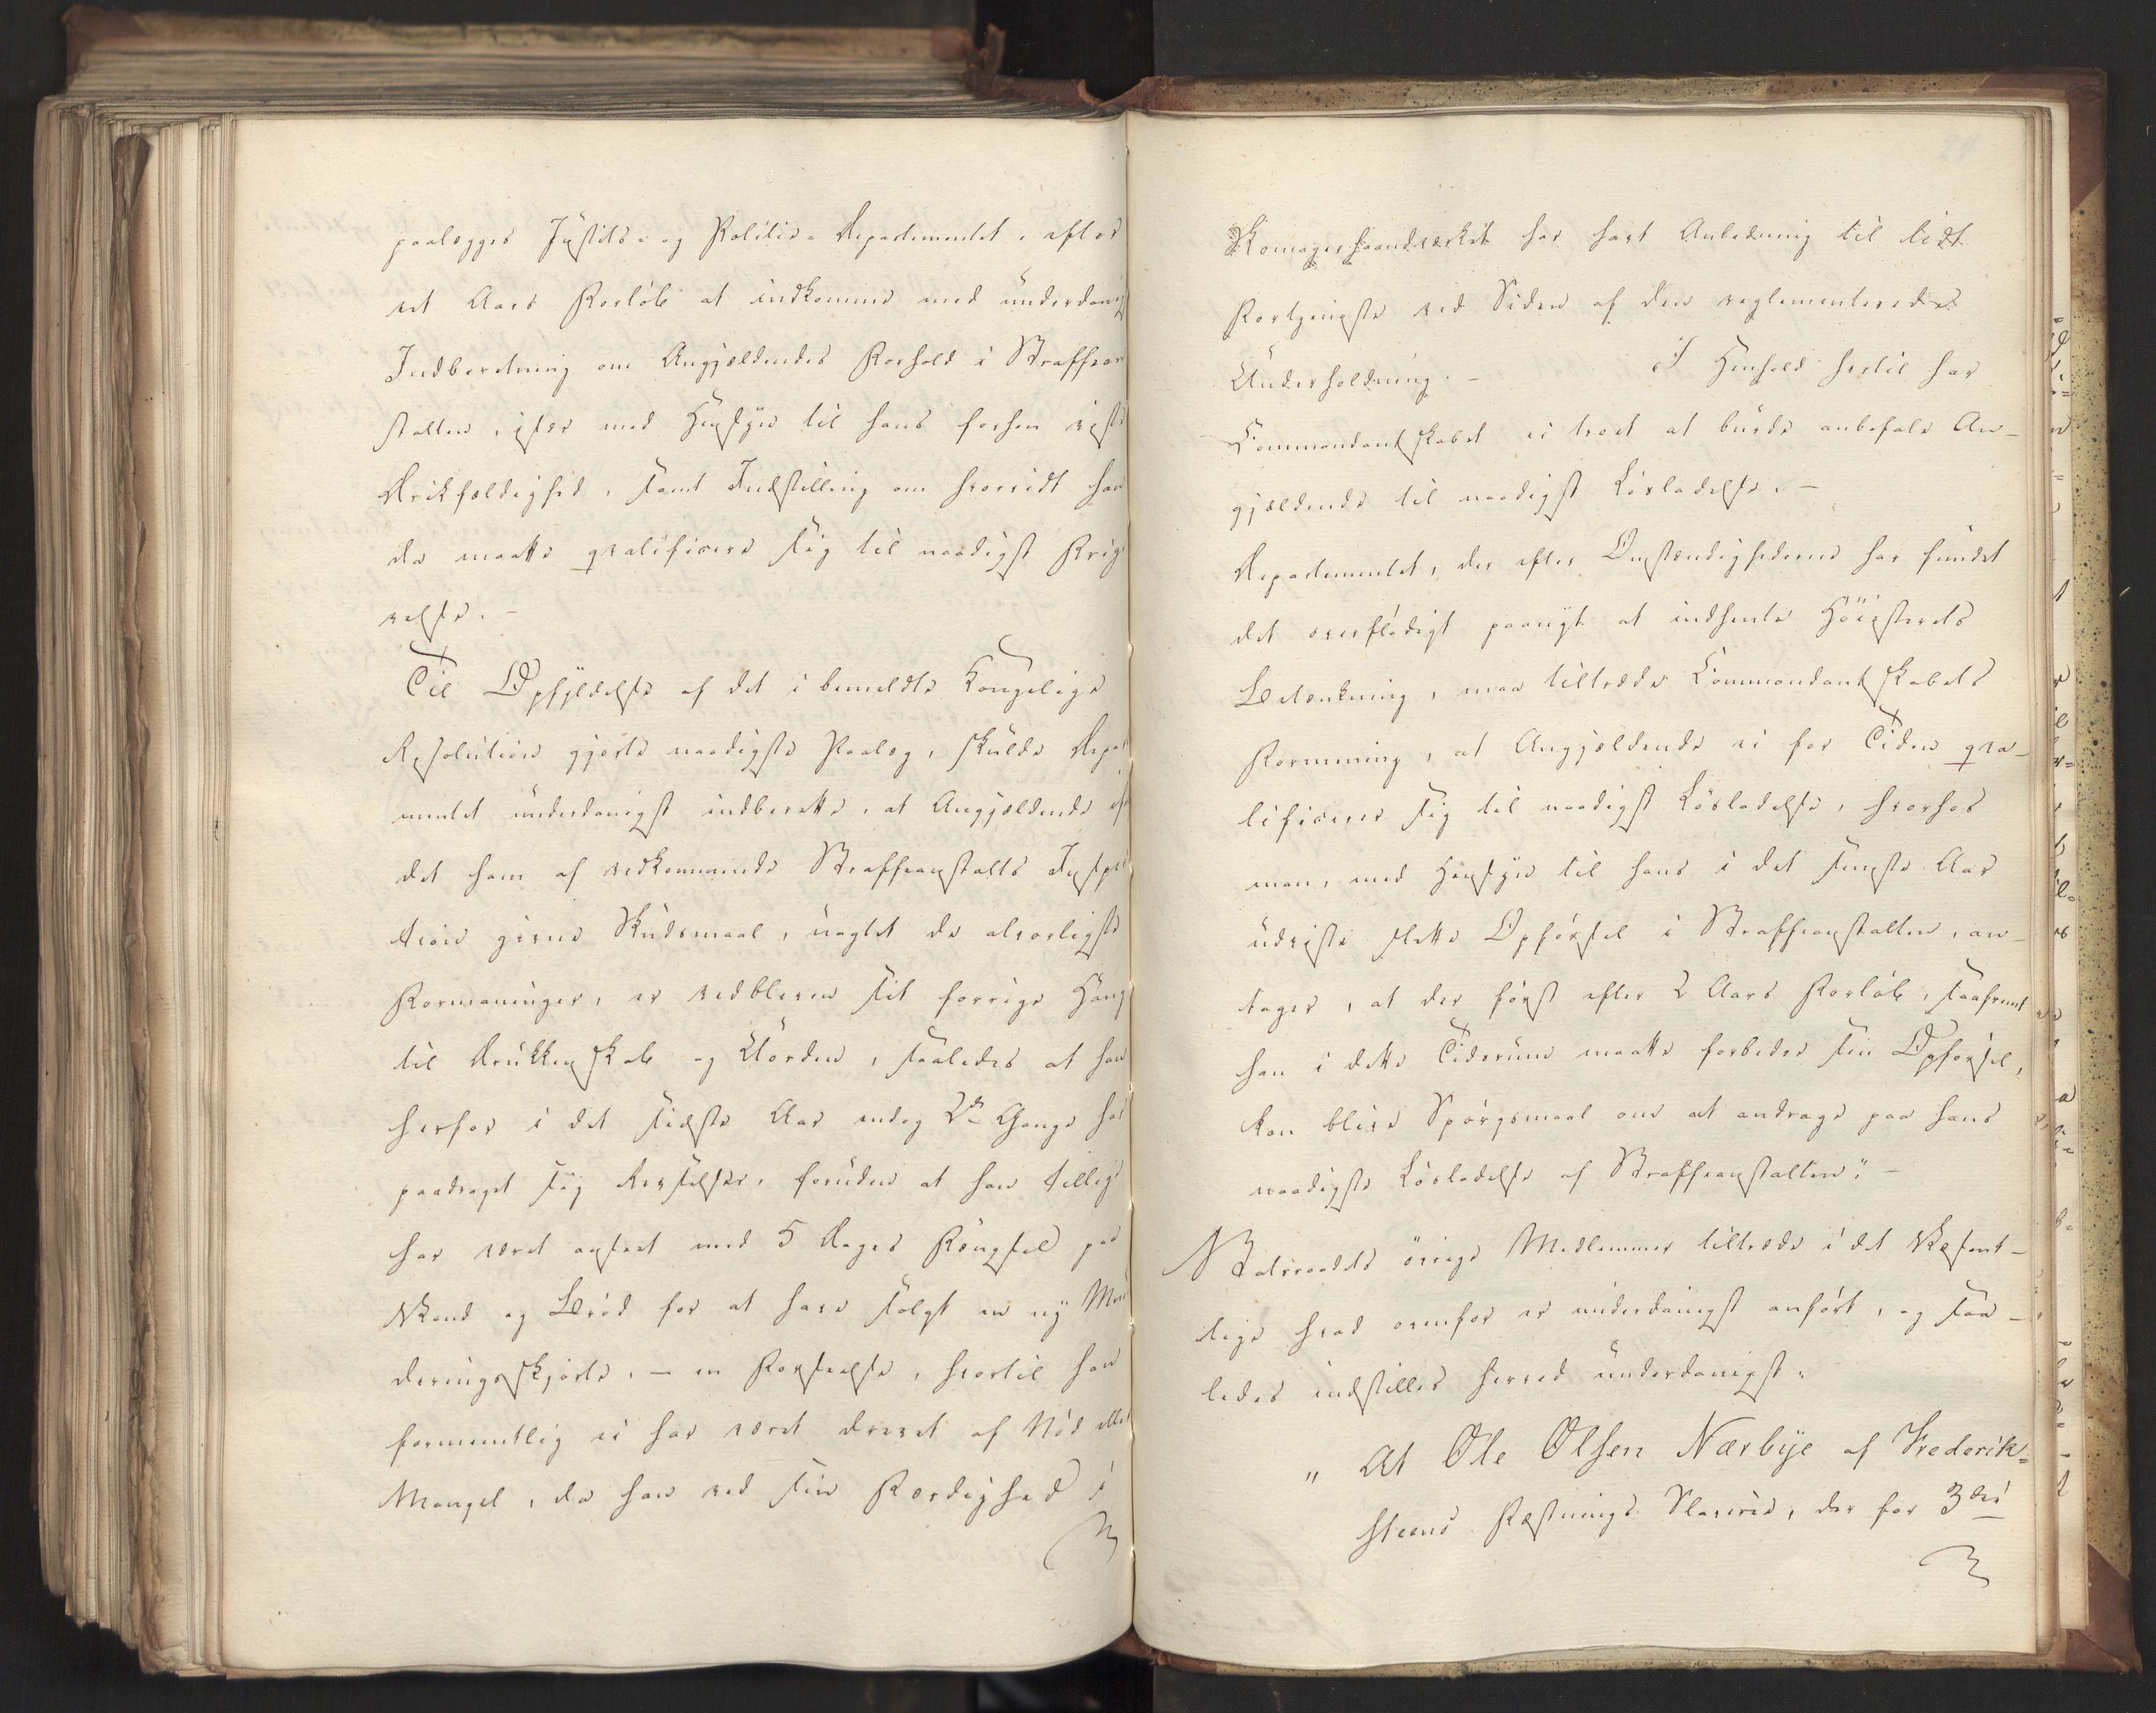 paalægges Justits- og Politie-Departementet, efter
et Aars Forløb at indkomme med underdanig
Indberetning om Angjældendes Forhold i Straffean
stalten, især med Hensyn til hans forhen viste
Drikfældighed, samt Indstilling om hvorvidt han
da maatte qvalificere sig til naadigst Frigi
velse. –
Til Opfyldelse af det i bemeldte Kongelige
Resolution gjorte naadigste Paalæg, skulde Depar
mentet underdanigst indberette, at Angjældende ef
det ham af vedkommende Straffeanstalts Inspec
teion givne Skudsmaal, uagtet de alvorligste
Formaninger, er vedbleven sit forrige Hang
til Drukkenskab og Uorden, saaledes at han
herfor i det sidste Aar endog 2de Gange har
paadraget sig Revselser, foruden at han tillige
har været anseet med 5 Dages Fængsel paa
Vand og Brød for at have solgt en ny Mon
deringsskjorte, – en Forseelse, hvortil han
formeentlig ei har været drevet af Nød eller
Mangel, da han ved sin Færdighed i
Skomagerhaandværket har havt Anledning til lidt
Fortjeneste ved Siden af den reglementerede
Underholdning. – I Henhold hertil har
Commandantskabet ei troet at burde anbefale An-
gjældende til naadigst Løsladelse. –
Departementet, der efter Omstændighederne har fundet
det overflødigt paanyt at indhente Høiesterets
Betænkning, maa tiltræde Commandantskabets
Formening, at Angjældende ei for Tiden qva-
lificerer sig til naadigst Løsladelse, hvorhos
man, med Hensyn til hans i det seneste Aar
udviste slette Opførsel i Straffeanstalten, an-
tager, at der først efter 2 Aars Forløb, saafremt
han i dette Tidsrum maatte forbedre sin Opførsel,
kan blive Spørgsmaal om at andrage paa hans
naadigste Løsladelse af Straffeanstalten". –
Statsraadets øvrige Medlemmer tiltræde i det Væsent-
lige hvad ovenfor er underdanigst anført, og saa-
ledes indstilles herved underdanigst:
„ At Ole Olsen Nærbye af Frederik-
steens Fæstnings Slaverie, der for 3die